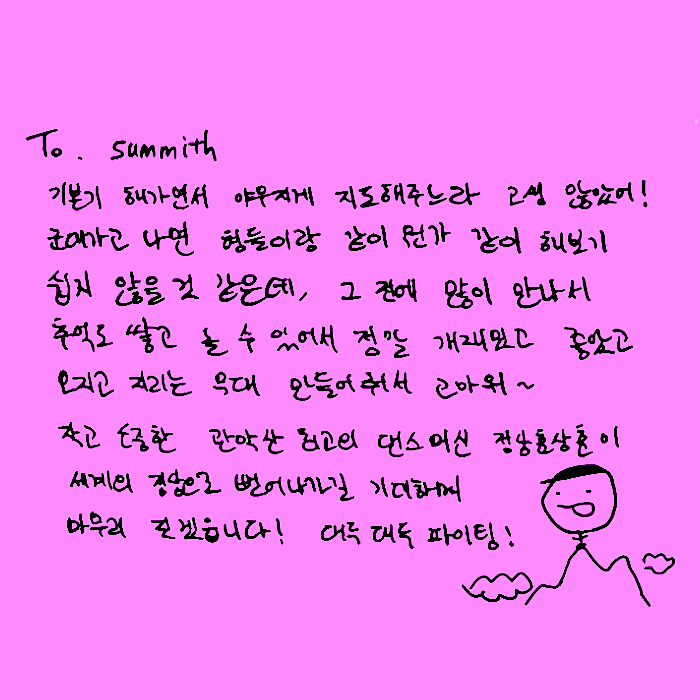 To. summith
기본기 해가면서 야무지게 지도해주느라 고생 많았어!
군대가고 나면 형들이랑 같이 뭔가 같이 해보기
쉽지 않을 것 같은데, 그 전에 많이 만나서
추억도 쌓고 놀 수 있어서 정말 개재밌고 좋았고
오지고 지리는 무대 만들어줘서 고마워~
작고 소중한 관악산 최고의 댄스머신 정상훈상훈이
세계의 정상으로 뻗어나가길 기대하며
마무리 짓겠습니다! 대두대두 파이팅!